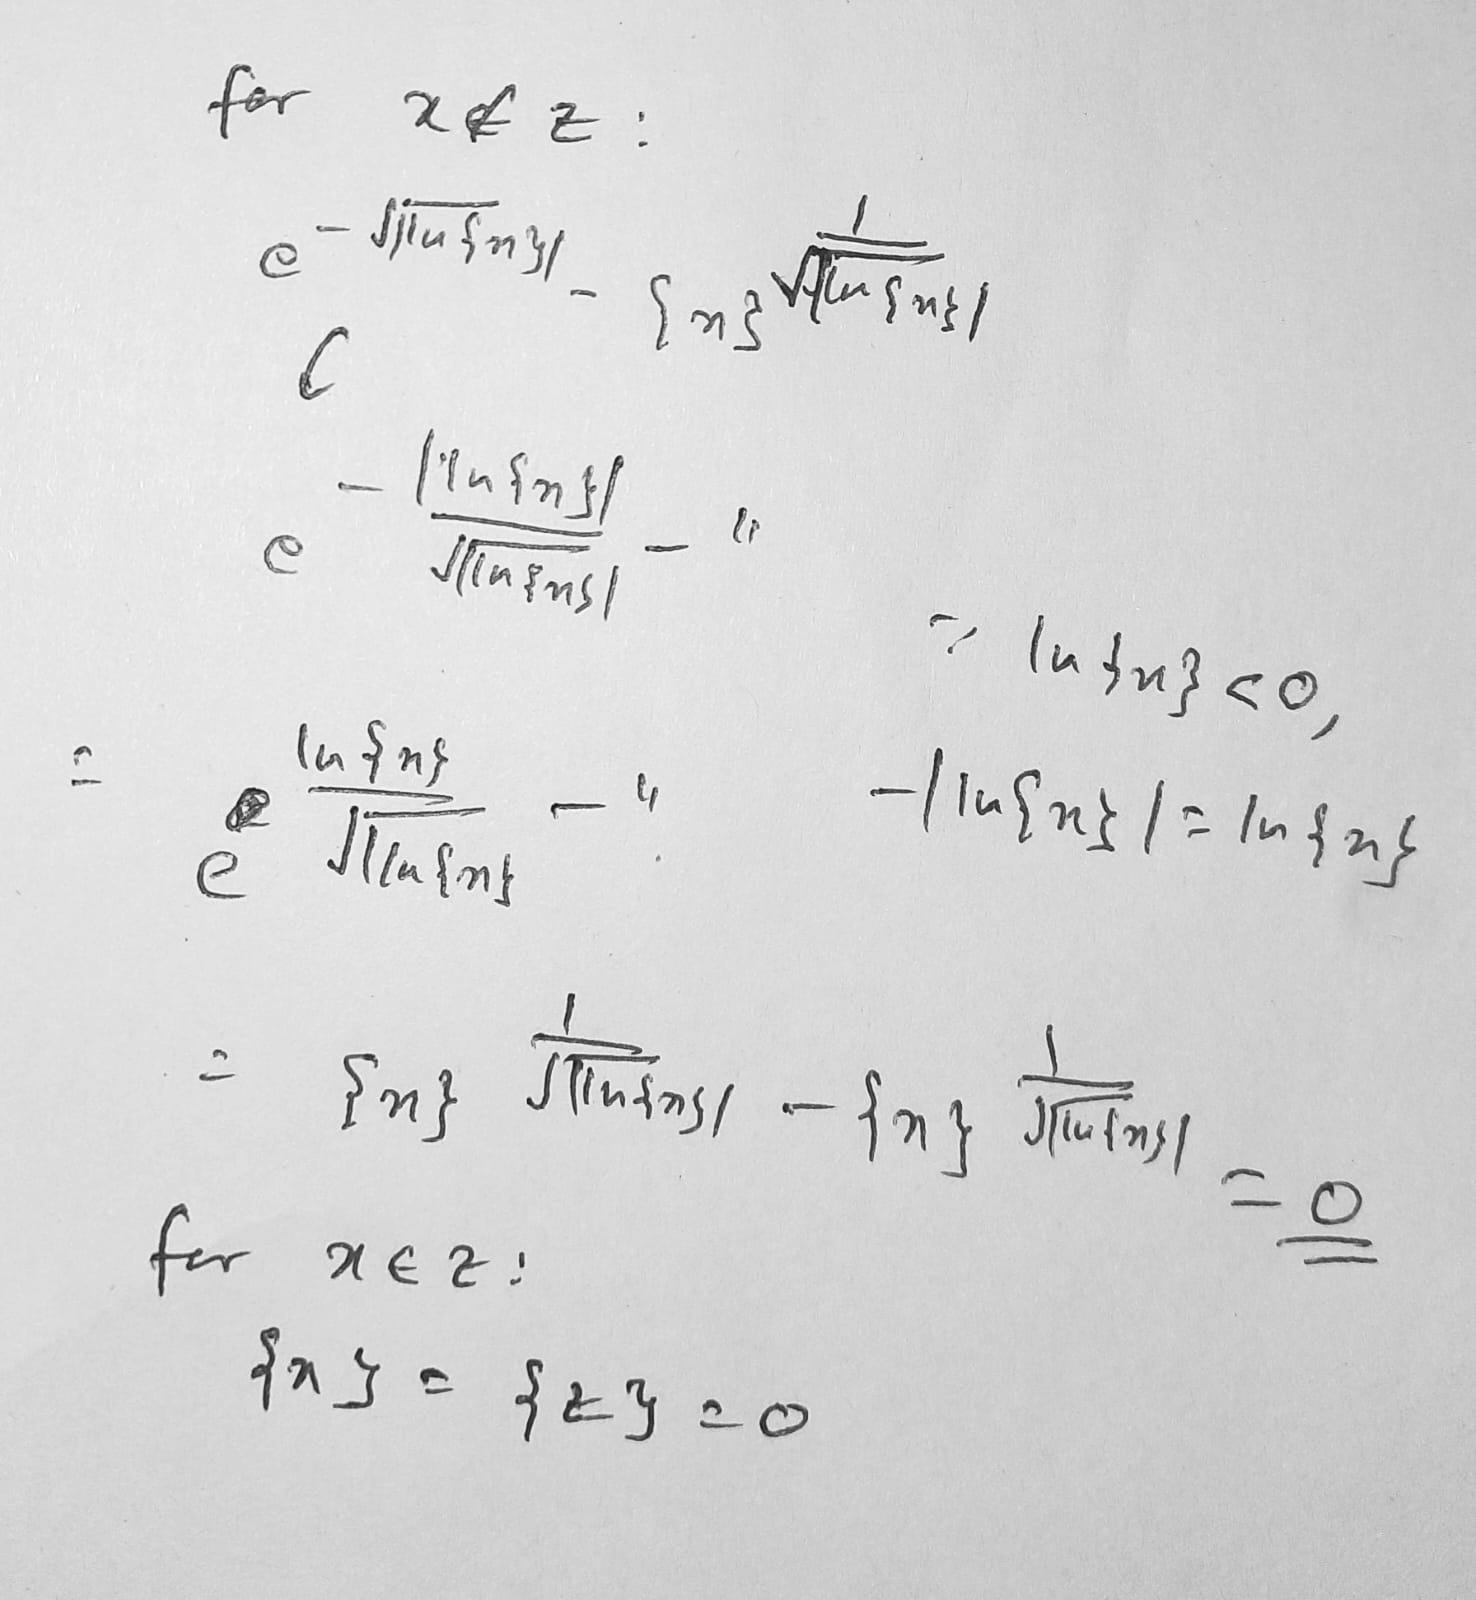 for x ∉ Z :
e^{-√|ln{x}|} - {x}^{1/√|ln{x}|}
e^{-|ln{x}|/√|ln{x}|} - "
∵ ln{x} < 0,
= e^{ln{x}/√|ln{x}} - "
-|ln{x}| = ln{x}
= {x}^{1/√|ln{x}|} - {x}^{1/√|ln{x}|} = 0
for x ∈ Z :
{x} = {Z} = 0